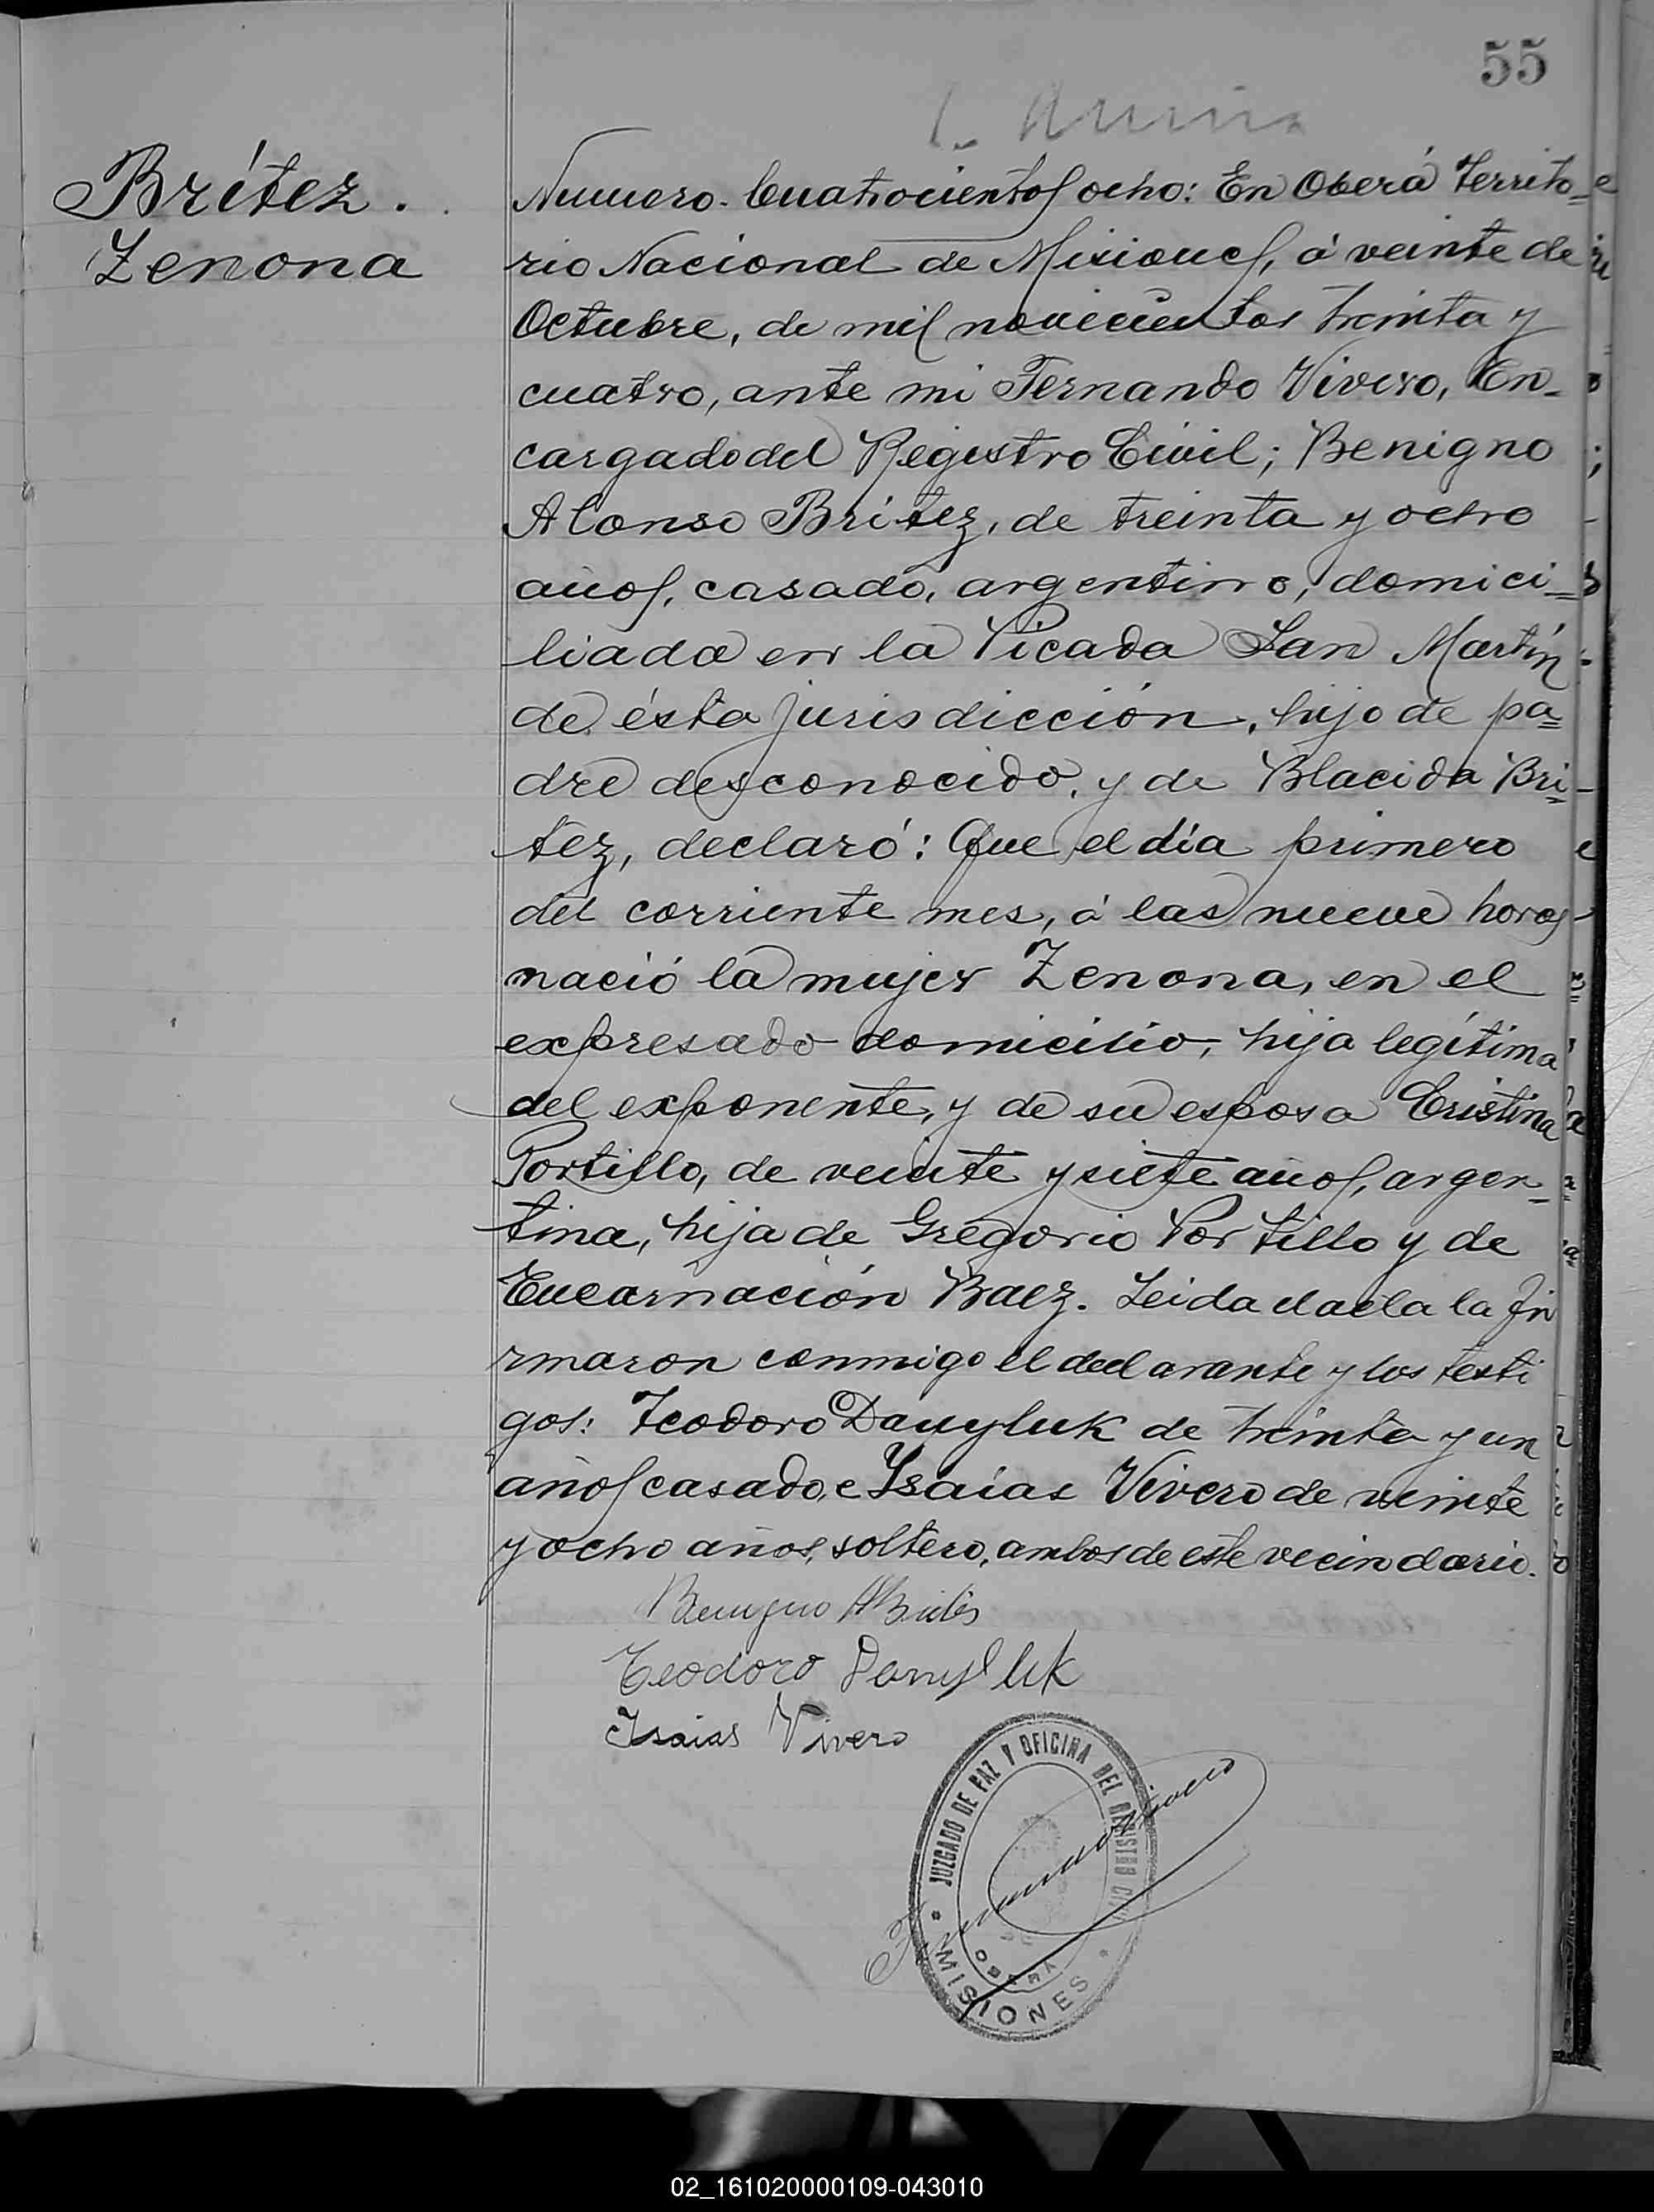 55
Brítez.
Zenona
Numero. Cuatrocientos ocho: En Oberá Territo=
rio Nacional de Misiones, á veinte de
Octubre, de mil novecientos treinta y
cuatro, ante mi Fernando Vivero, En-
cargado del Registro Civil; Benigno
Alonso Britez, de treinta y ocho
años, casado, argentino, domici=
liado en la Picada San Martín
de ésta jurisdicción, hijo de pa=
dre desconocido, y de Blacida Bri=
tez, declaró: Que el día primero
del corriente mes, á las nueve horas
nació la mujer Zenona, en el
expresado domicilio, hija legítima
del exponente, y de su esposa Cristina
Portillo, de veinte y siete años, argen=
tina, hija de Gregorio Portillo y de
Encarnación Baez. Leida el acta la fir
rmaron conmigo el declarante y los testi
gos: Teodoro Danyluk de treinta y un
años casado, e Ysaías Vivero de veinte
y ocho años, soltero, ambos de este vecindario.
Benigno ABritez
Teodoro Danylluk
Isaias Vivero
JUZGADO DE PAZ Y OFICINA DEL REGISTRO CIVIL
OBERÁ
* MISIONES *
Fernando Vivero
02_161020000109-043010